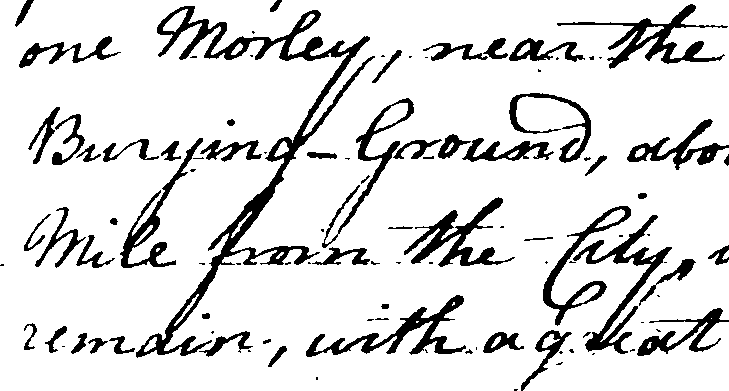 one Morley, near the
Burying-Ground, abo
Mile from the City,
remain, with a great